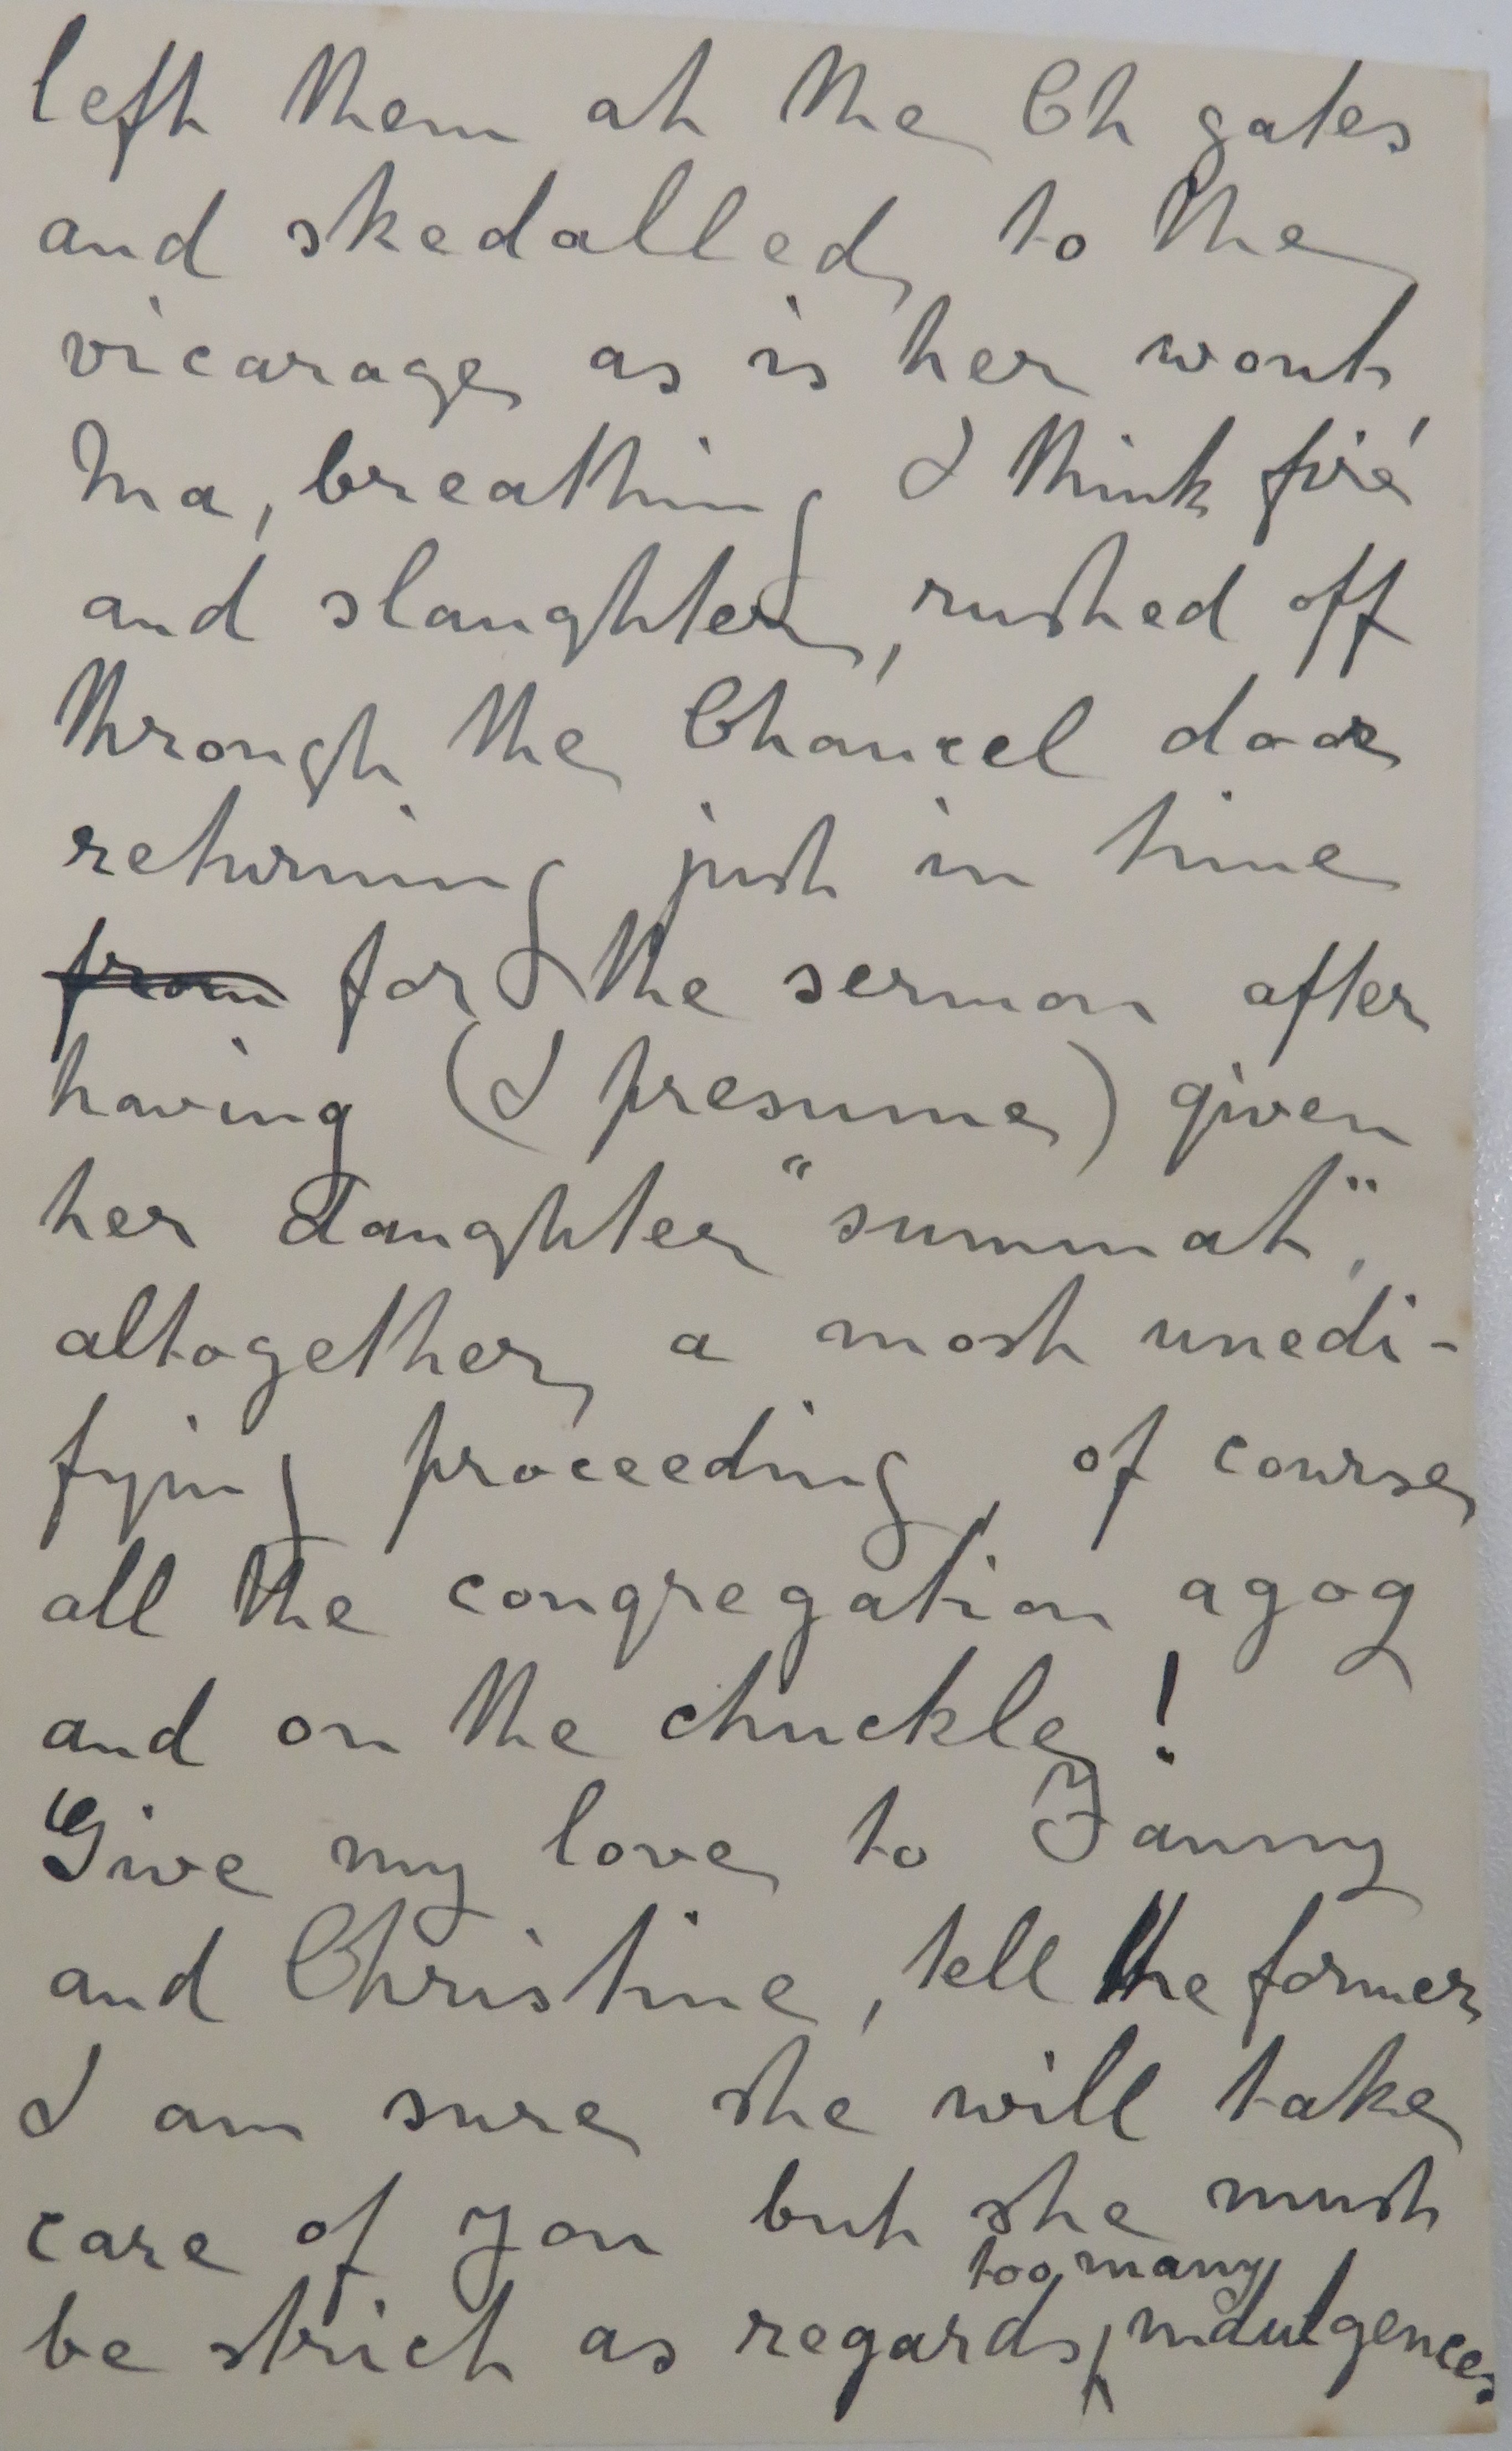 left them at the Ch gates
and skedalled to the
vicarage as is her wont,
Ma, breathing I think fire
and slaughter, rushed off
through the Chancel door
returning just in time
from for the sermon after
having (I presume) given
her daughter "summat",
altogether a most unedi-
fying proceeding, of course
all the congregation agog
and on the chuckle!
Give my love to Fanny
and Christine, tell the former
I am sure she will take
care of you but she must
too many
be strict as regards indulgences